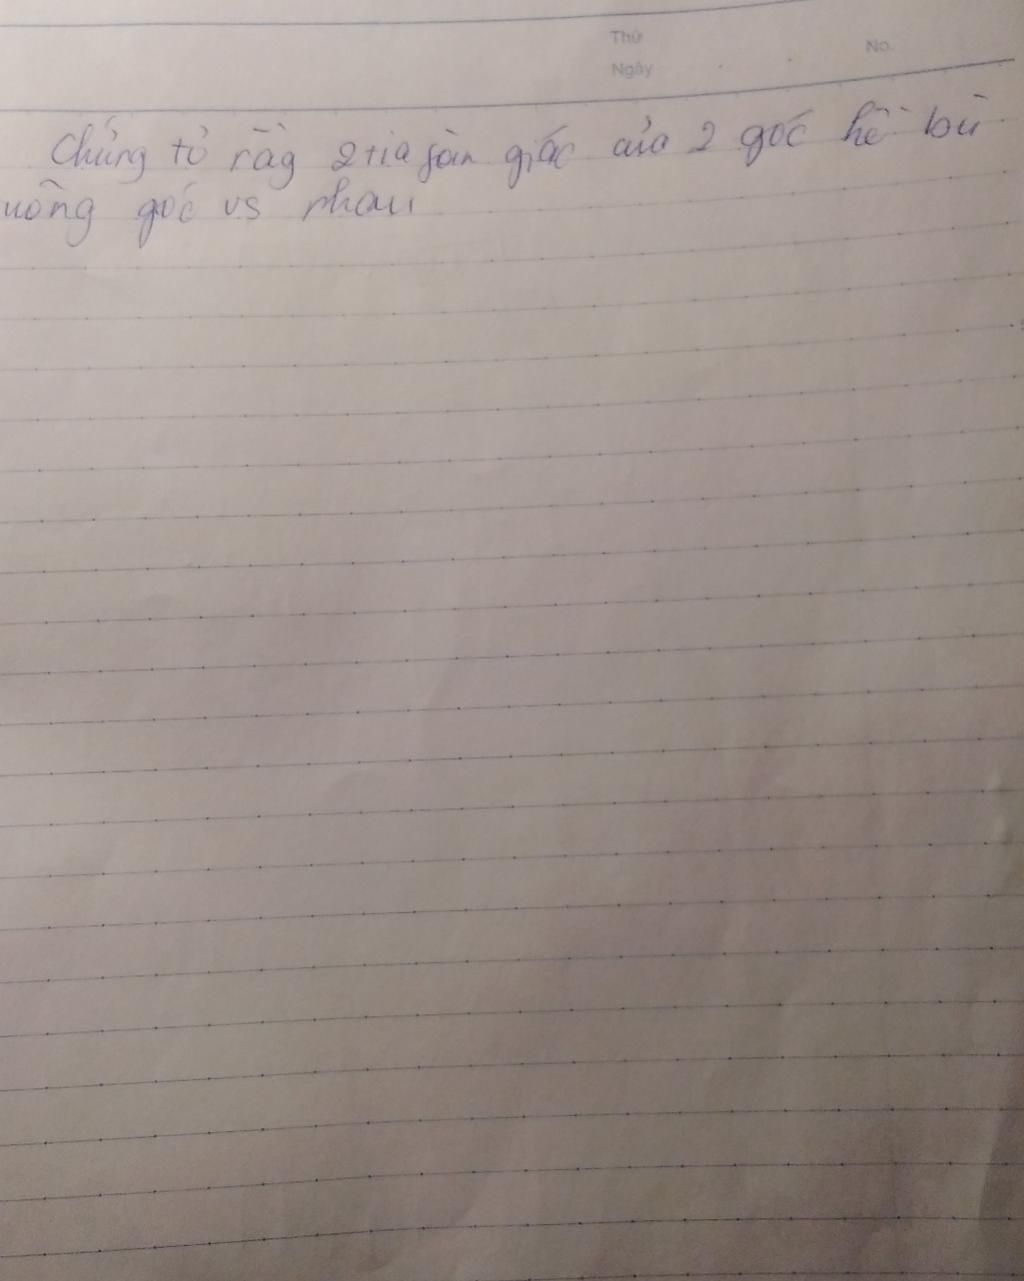 Thứ
No.
Ngày
Chứng tỏ rằg 2 tia fân giác của 2 góc kề bù
uông góc vs nhau